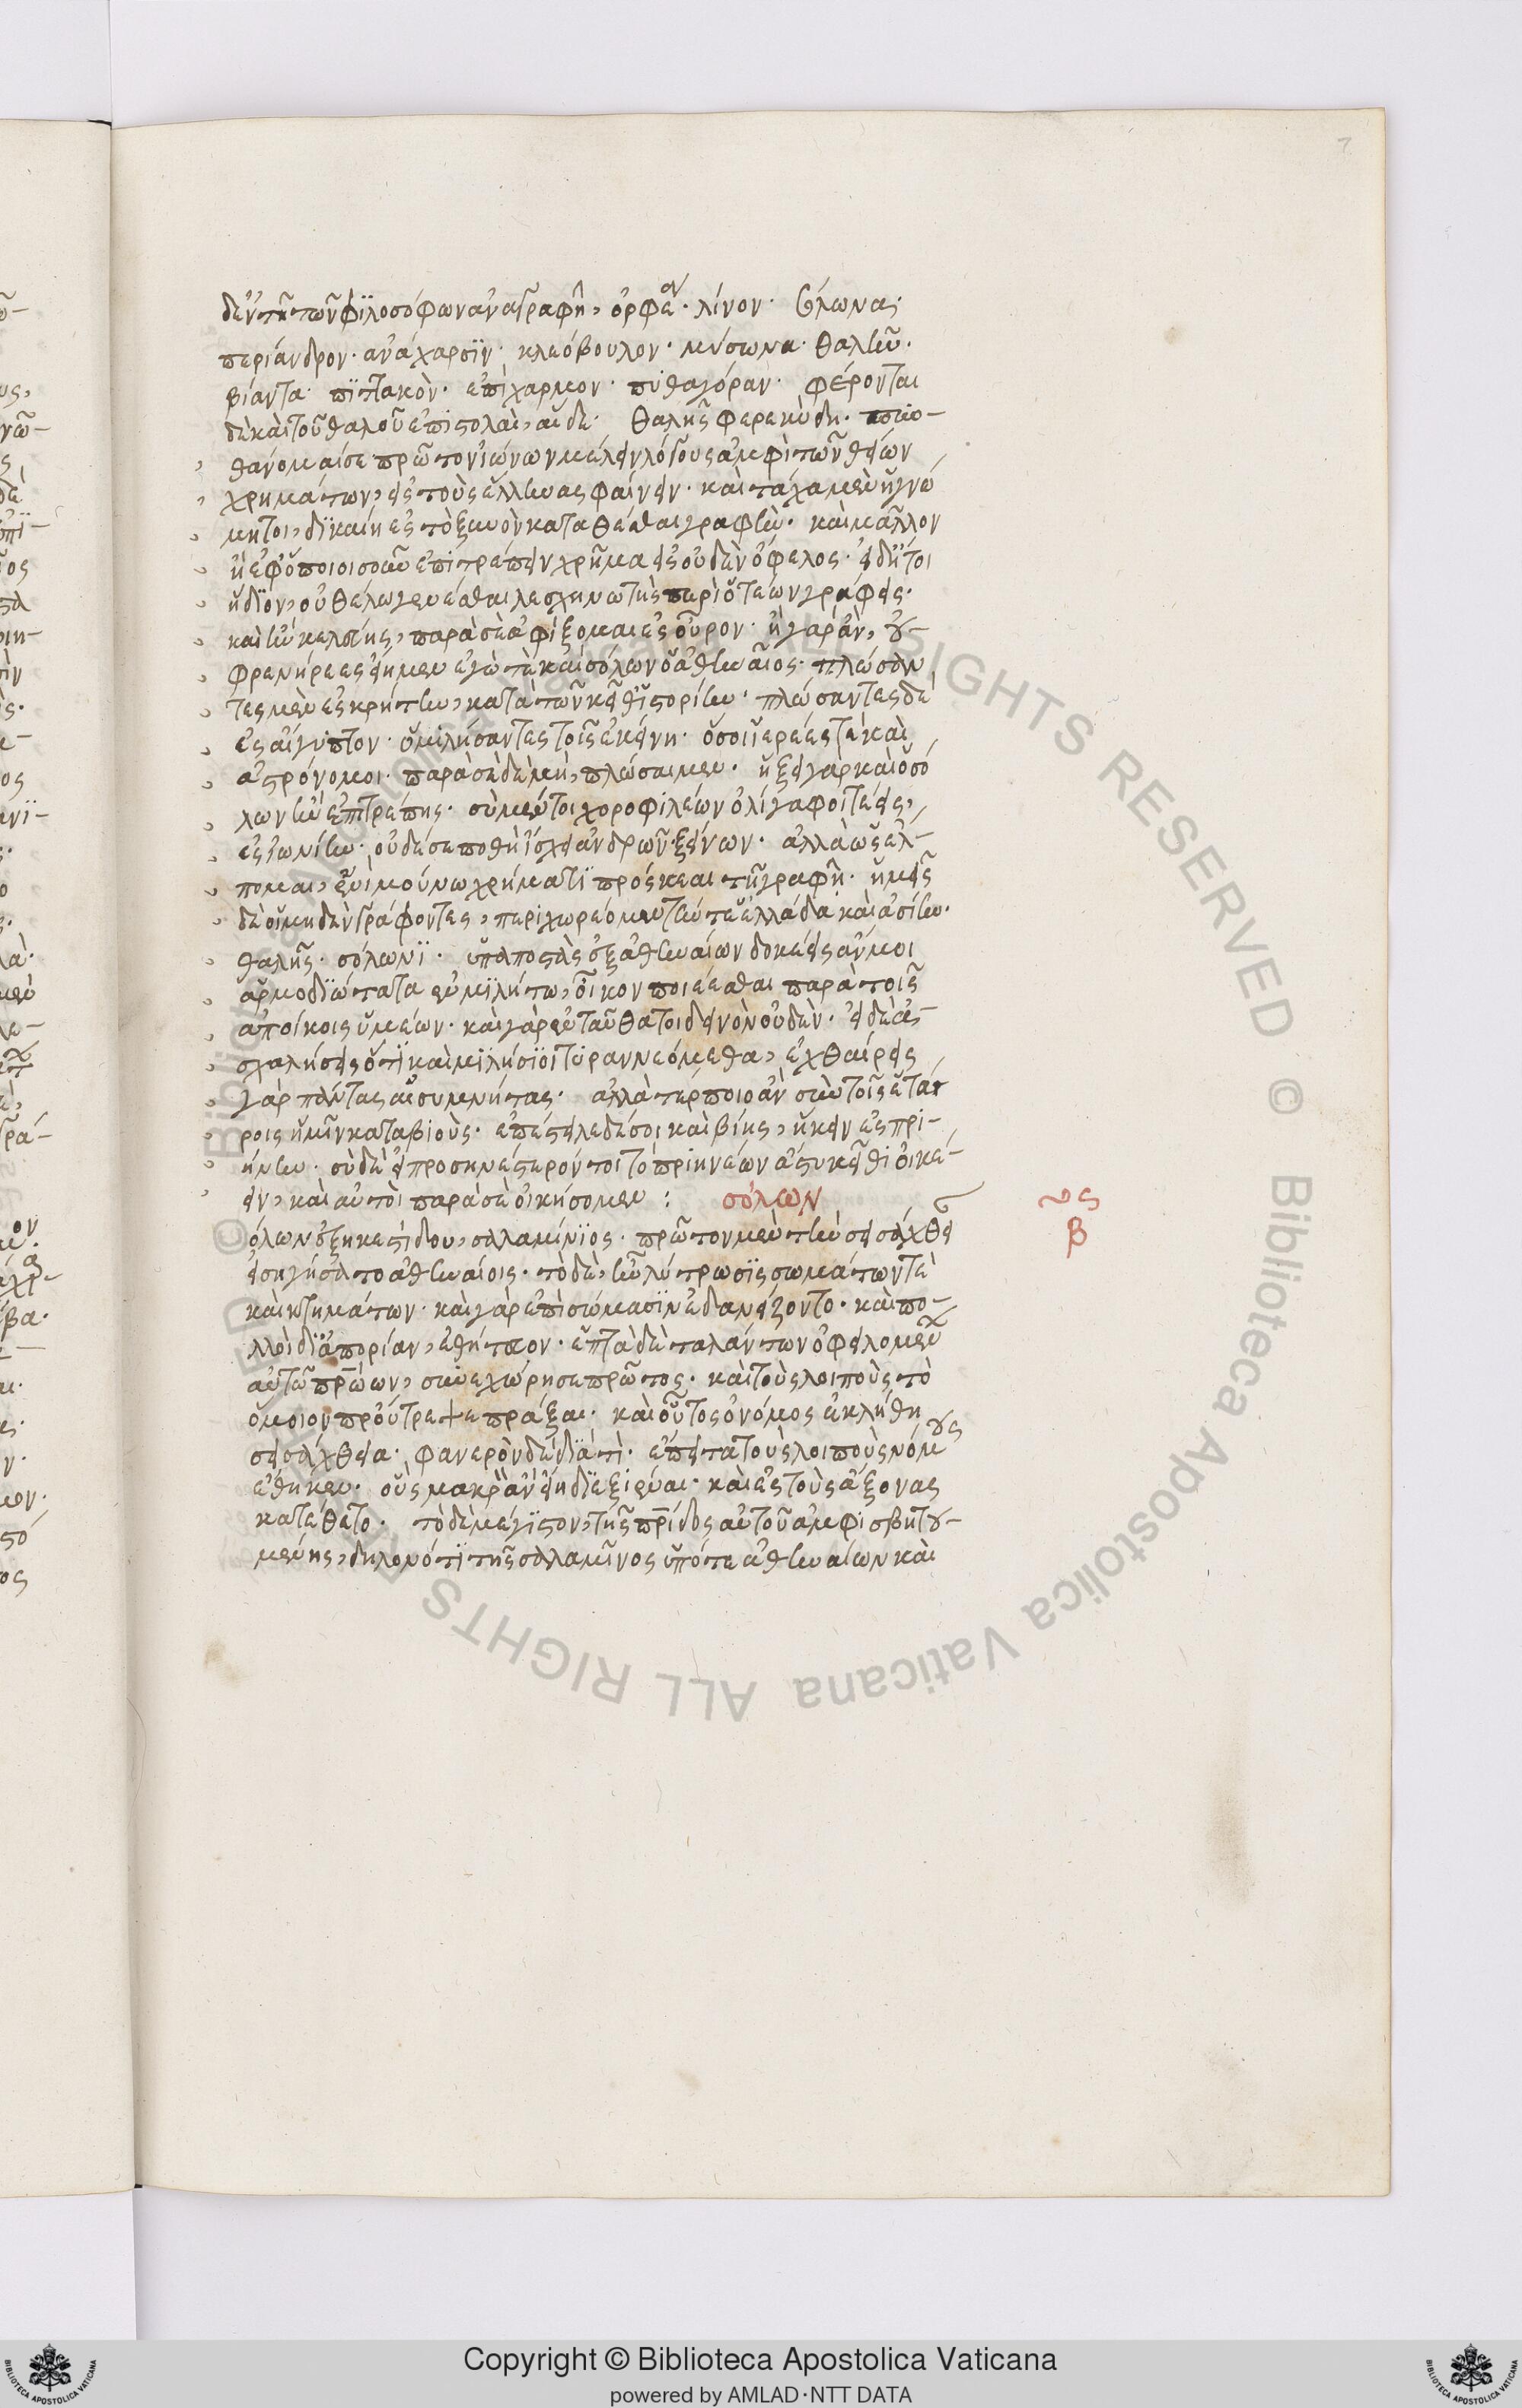 7
δ' ἐν τῇ τῶν φιλοσόφων ἀναγραφῇ, ὀρφέα. λίνον. σόλωνα.
περίανδρον. ἀνάχαρσϊν. κλεόβουλον. μύσωνα. θαλῆν.
βίαντα. πϊττακὸν. ἐπίχαρμον. πυθαγόραν. φέρονται
δὲ καὶ τοῦ θαλοῦ ἐπιστολαὶ, αἵδε. θαλῆς φερεκύδη. πυν-
θάνομαί σε πρῶτον ἰώνων μέλειν λόγους ἀμφὶ τῶν θείων
χρημάτων, ἐς τοὺς ἕλληνας φαίνειν. καὶ τάχα μὲν ἡ γνώ
μη τοι, δϊκαίη ἐς τὸ ξυνὸν καταθέσθαι γραφὴν. καὶ μᾶλλον
ἢ ἐφ' ὁποιοισοῦν ἐπιτρέπειν χρῆμα ἐς οὐδὲν ὄφελος. εἰ δή τοι
ἥδϊον, οὐ θέλω γενέσθαι λεσχηνώτης περὶ ὅτεων γράφεις.
καὶ ἢν κελεύης, παρὰ σὲ ἀφίξομαι ἐς σῦρον. ἢ γὰρ ἂν, οὐ
φρενήρεες εἴημεν ἐγὼ τὲ καὶ σόλων ὁ ἀθηναῖος. πλώσαν
τες μὲν ἐς κρήτην, κατὰ τῶν κεῖθι ἱστορίην. πλώσαντες δὲ
ἐς αἴγυπτον. ὁμιλήσαντες τοῖς ἐκείνη. ὅσοι ἱερέές τε καὶ
ἀστρόνομοι. παρὰ σὲ δὲ μὴ, πλώσαιμεν. ἥξει γὰρ καὶ ὁ σό
λων ἢν ἐπιτρέπης. σὺ μέντοι χοροφιλέων ὀλίγα φοιτέεις,
ἐς ἰωνίην. οὐδέ σε ποθὴ ἴσχει ἀνδρῶν ξείνων. ἀλλὰ ὡς ἔλ-
πομαι, ἑνὶ μούνω χρήματϊ πρόσκεαι τῆ γραφῆ. ἡμεῖς
δὲ οἱ μηδὲν γράφοντες, περιχωρέομεν τήν τε ἑλλάδα καὶ ἀσίην.
θαλῆς. σόλωνϊ. ὑπαποστὰς ἐξ ἀθηναίων δοκέεις ἄν μοι
ἁρμοδϊώτατα ἐν μϊλήτω, οἶκον ποιέεσθαι παρὰ τοῖς
ἀποίκοις ὑμέων. καὶ γὰρ ἐνταῦθα τοι δεινὸν οὐδὲν. εἰ δὲ ἀ-
σχαλήσεις ὅτϊ καὶ μϊλήσϊοι τϋραννεόμεθα, ἐχθαίρεις
γὰρ πάντας αἰσυμνήτας. ἀλλὰ τέρποιο ἂν σὺν τοῖς ἑτά
ροις ἡμῖν καταβιοὺς. ἐπέστειλε δέ σοι καὶ βίης, ἥκειν ἐς πρι-
ήνην. σὺ δὲ εἰ προσηνέστερόν τοι τὸ πριηνέων ἄστυ κεῖθι οἰκέ-
ειν, καὶ αὐτοὶ παρὰ σὲ οἰκήσομεν : σόλων
β
όλων ἐξηκεστίδου, σαλαμίνϊος. πρῶτον μὲν τὴν σεισάχθει
εἰσηγήσατο ἀθηναίοις. τὸ δὲ, ἦν λύτρωσϊς σωμάτων τὲ
καὶ κτημάτων. καὶ γὰρ ἐπὶ σώμασϊν ἐδανείζοντο. καὶ πο-
λλοὶ δϊ' ἀπορίαν, ἐθήτευον. ἑπτὰ δὴ ταλάντων ὀφειλομέν
αὐτῶ πρώων, συνεχώρησε πρῶτος. καὶ τοὺς λοιποὺς τὸ
ὅμοιον προὔτρεψε πράξαι. καὶ οὗτος ὁ νόμος ἐκλήθη
σεισάχθεια. φανερὸν δὲ δϊατί. ἔπειτα τοὺς λοιποὺς νόμους
ἔθηκεν. οὓς μακρὰν ἂν εἴη δϊεξιέναι. καὶ ἐς τοὺς ἄξονας
κατέθετο. τὸ δὲ μέγϊστον, τῆς πρίδος αὐτοῦ ἀμφισβητου-
μένης, δηλονότϊ τῆς σαλαμῖνος ὑπό τε ἀθηναίων καὶ
Copyright © Biblioteca Apostolica Vaticana
powered by AMLAD·NTT DATA